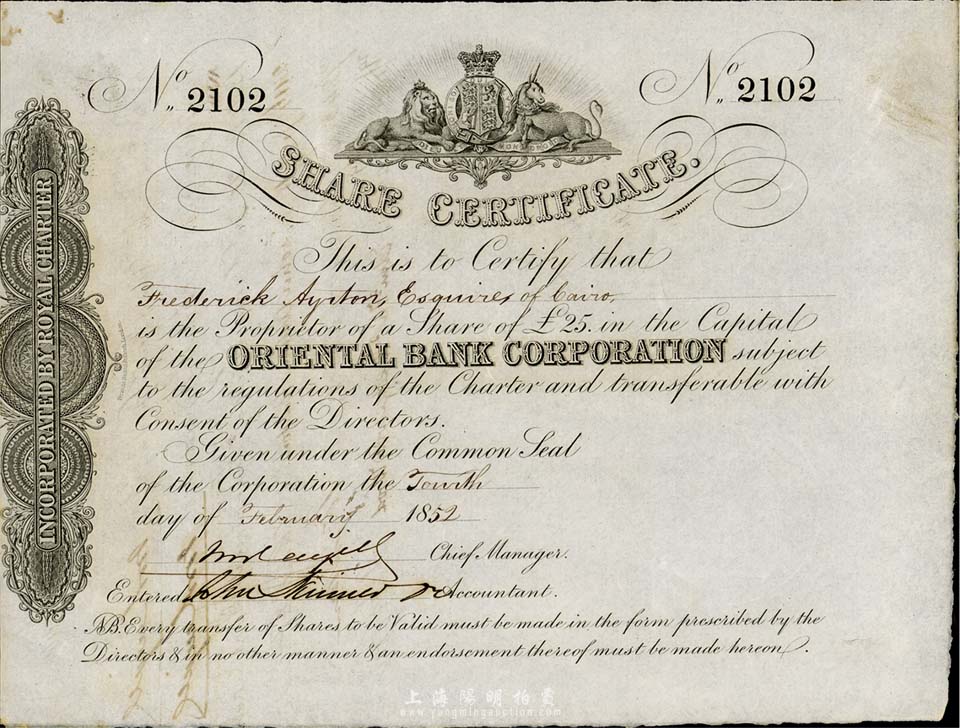 No. 2102
No. 2102
SHARE CERTIFICATE.
INCORPORATED BY ROYAL CHARTER
This is to Certify that
Frederick Ayrton, Esquire, of Cairo,
is the Proprietor of a Share of £25. in the Capital
of the ORIENTAL BANK CORPORATION subject
to the regulations of the Charter and transferable with
Consent of the Directors.
Given under the Common Seal
of the Corporation the Fourth
day of February 1852
Chief Manager.
Entered John Skinner Accountant.
NB. Every transfer of Shares to be Valid must be made in the form prescribed by the
Directors & in no other manner & an endorsement thereof must be made hereon.
上海陽明拍賣
www.yangmingauction.com